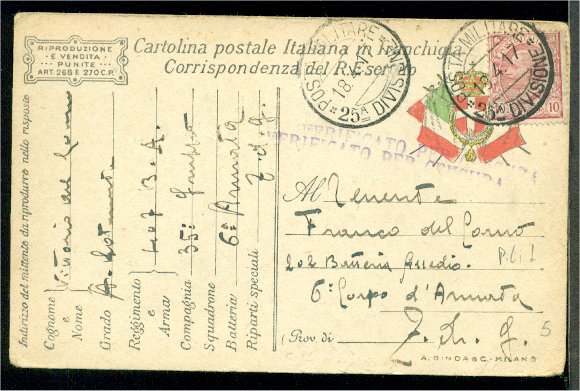 RIPRODUZIONE
E VENDITA
PUNITE
ART. 268 E 270 C.P.
Cartolina postale Italiana in franchigia
Corrispondenza del R. Esercito
POSTA MILITARE
25ª DIVISIONE
18.4.17
POSTA MILITARE
25ª DIVISIONE
18.4.17
10
VERIFICATO PER CENSURA
VERIFICATO PER CENSURA
Indirizzo del mittente da riprodurre nelle risposte
Cognome e Nome Vittorio del Corno
Grado
Reggimento e Arma 407 B.A.
Compagnia 35º Gruppo
Squadrone 6ª Armata
Batteria
Riparti speciali
Al Tenente
Franco del Corno
202 Batteria Assedio
6º Corpo d'Armata
(Prov di
5
A. BINDA & C. - MILANO